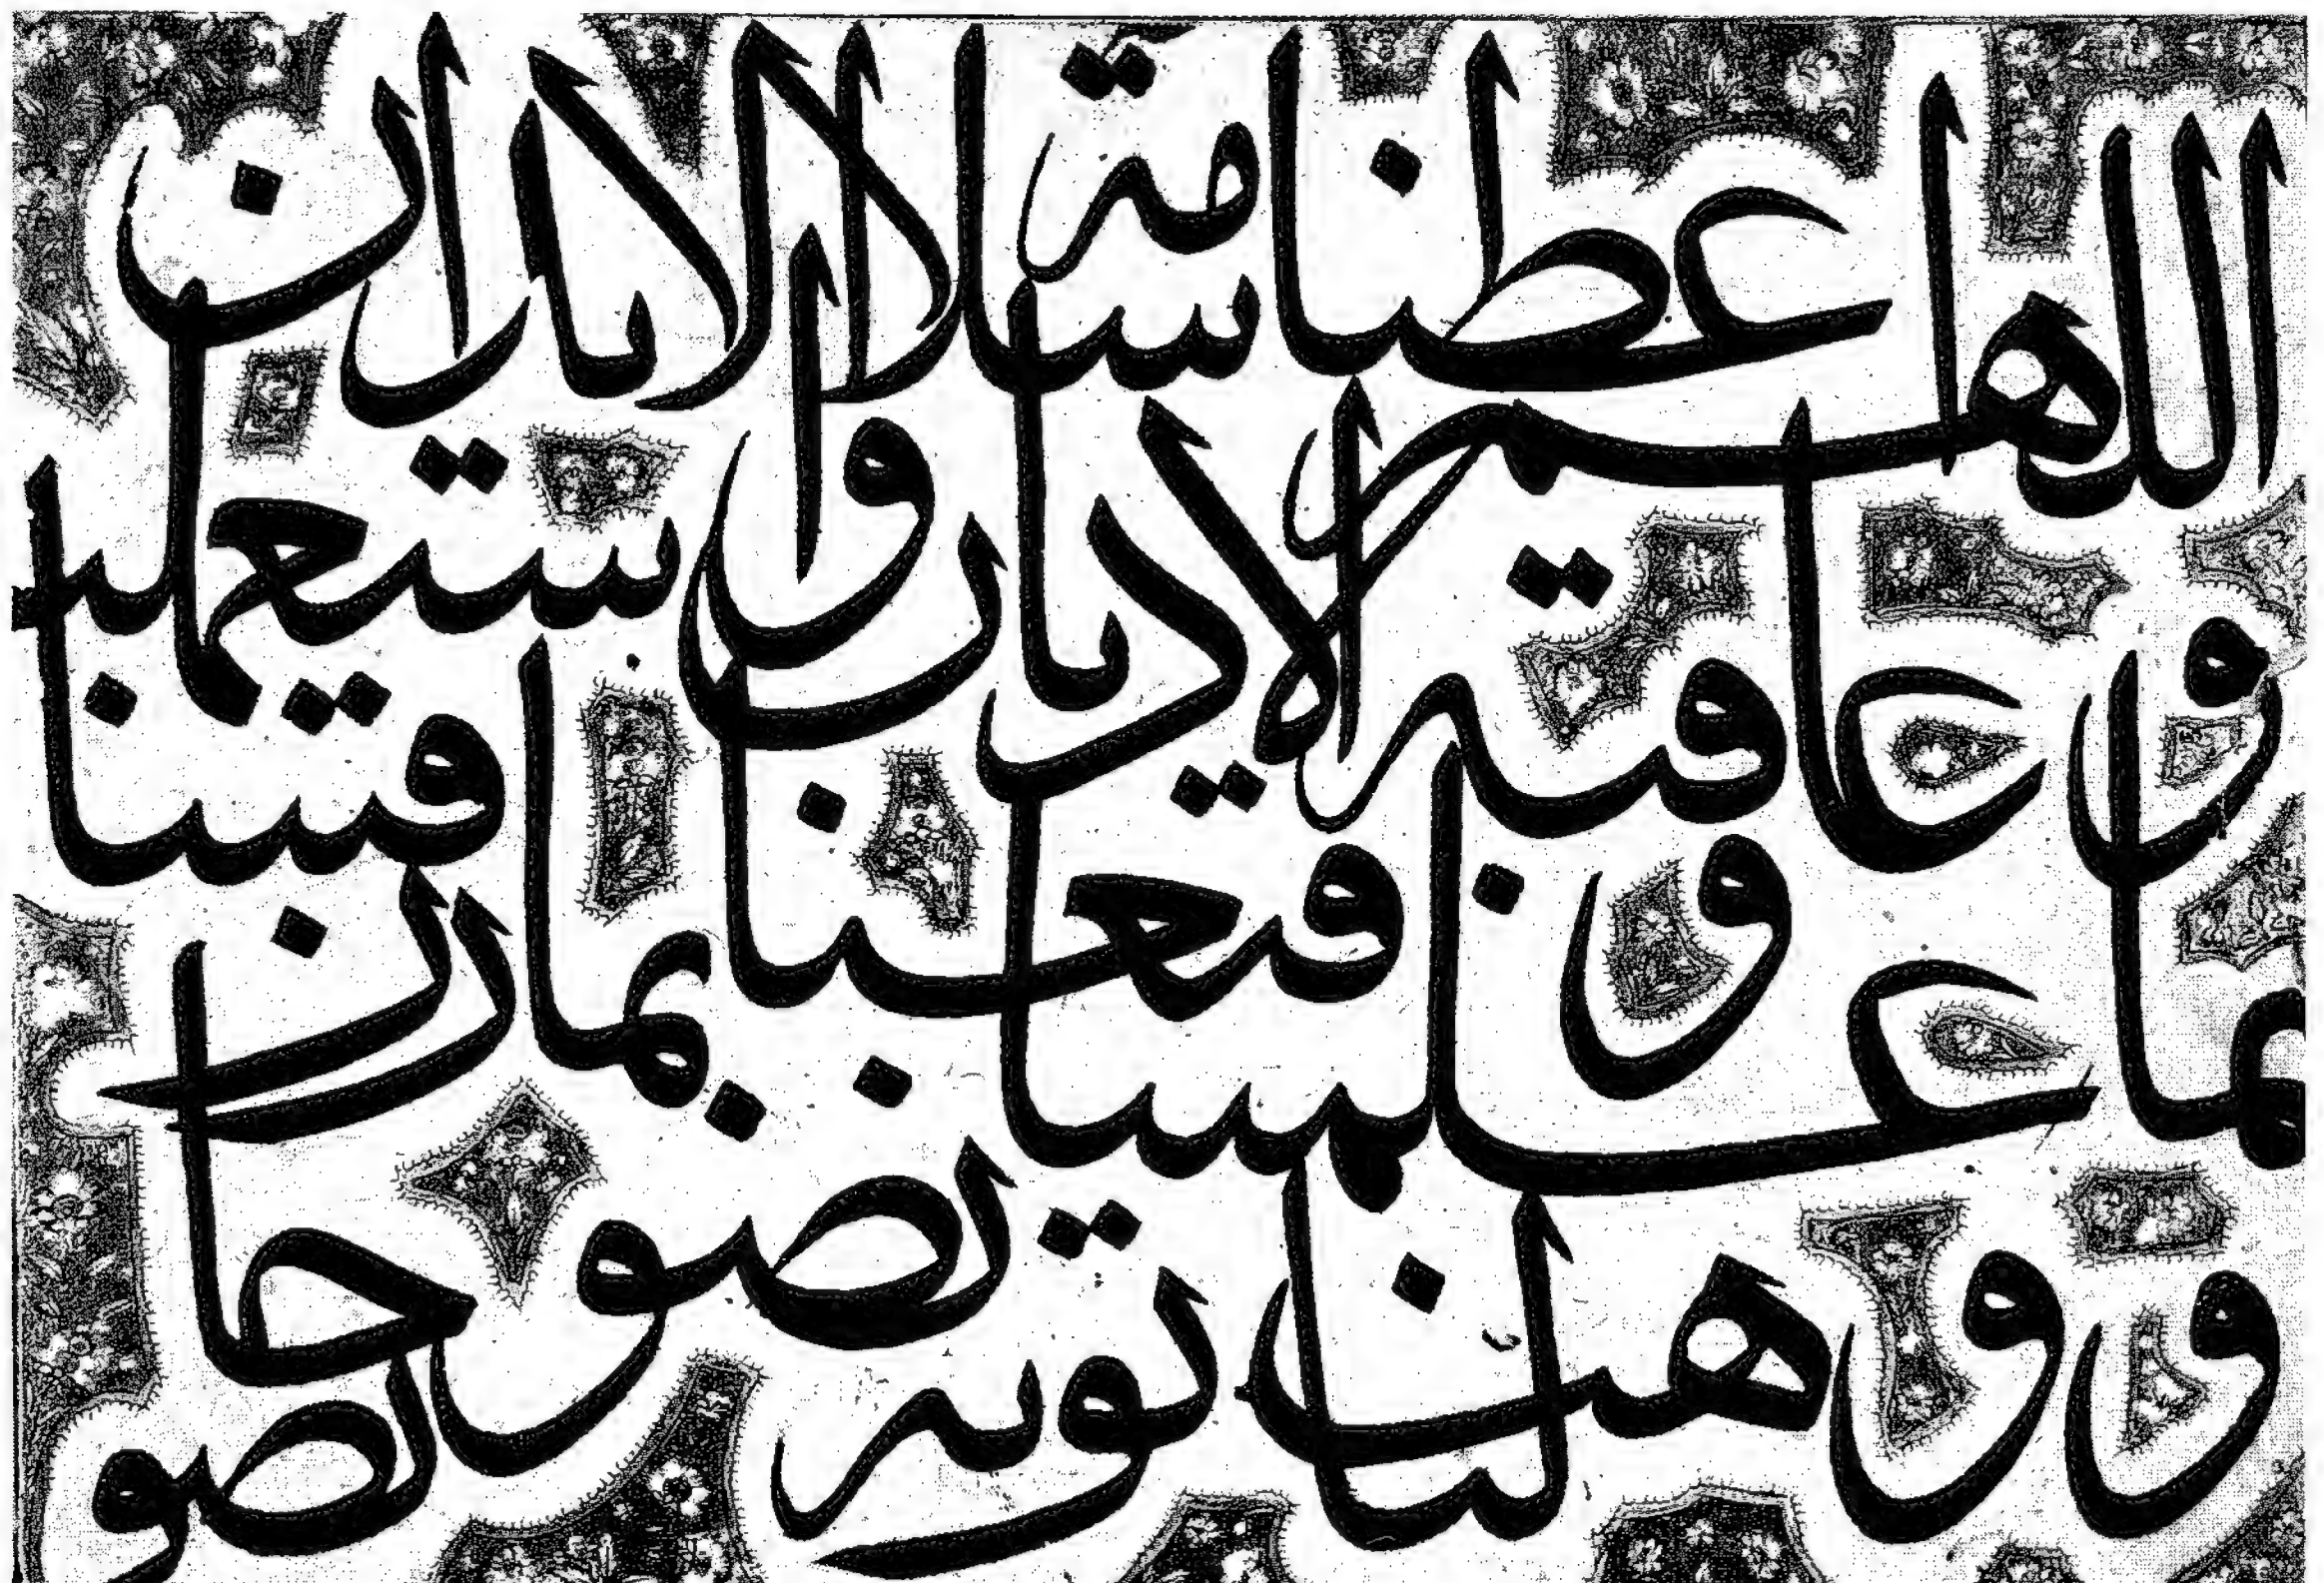 اللهم اعطنا سلامة الابدان
و عافية الاديان و استعملنا
بما علمتنا و قنعنا بما رزقتنا
و و هب لنا توبة نصوحا نصو